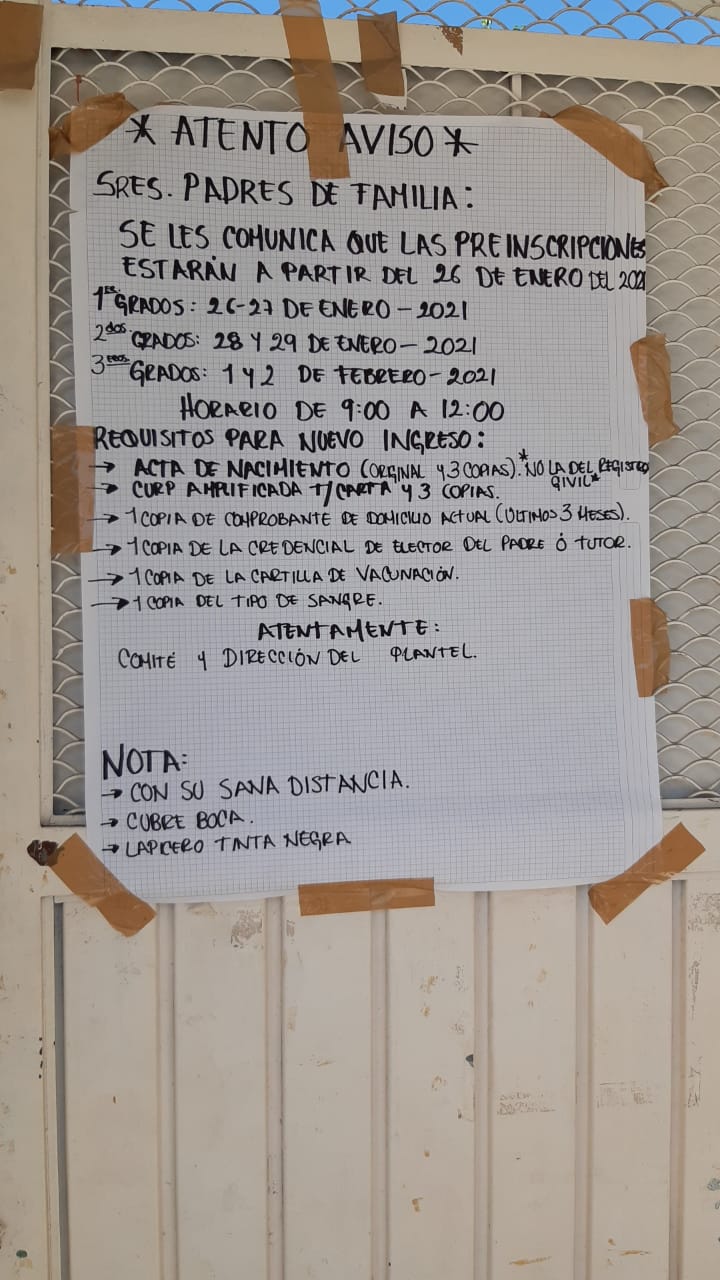 * ATENTO AVISO *
SRES. PADRES DE FAMILIA:
SE LES COMUNICA QUE LAS PREINSCRIPCIONES
ESTARÁN A PARTIR DEL 26 DE ENERO DEL 2021
1ᵉʳ GRADOS: 26-27 DE ENERO - 2021
2dos. GRADOS: 28 Y 29 DE ENERO - 2021
3eros GRADOS: 1 y 2 DE FEBRERO - 2021
HORARIO DE 9:00 A 12:00
REQUISITOS PARA NUEVO INGRESO:
→ ACTA DE NACIMIENTO (ORGINAL Y 3 COPIAS). *NO LA DEL REGISTRO
CIVIL*
→ CURP AMPLIFICADA T/CARTA Y 3 COPIAS.
→ 1 COPIA DE COMPROBANTE DE DOMICILIO ACTUAL (ÚLTIMOS 3 MESES).
→ 1 COPIA DE LA CREDENCIAL DE ELECTOR DEL PADRE Ó TUTOR.
→ 1 COPIA DE LA CARTILLA DE VACUNACIÓN.
→ 1 COPIA DEL TIPO DE SANGRE.
ATENTAMENTE:
COMITÉ Y DIRECCIÓN DEL PLANTEL.
NOTA:
→ CON SU SANA DISTANCIA.
→ CUBRE BOCA.
→ LAPICERO TINTA NEGRA